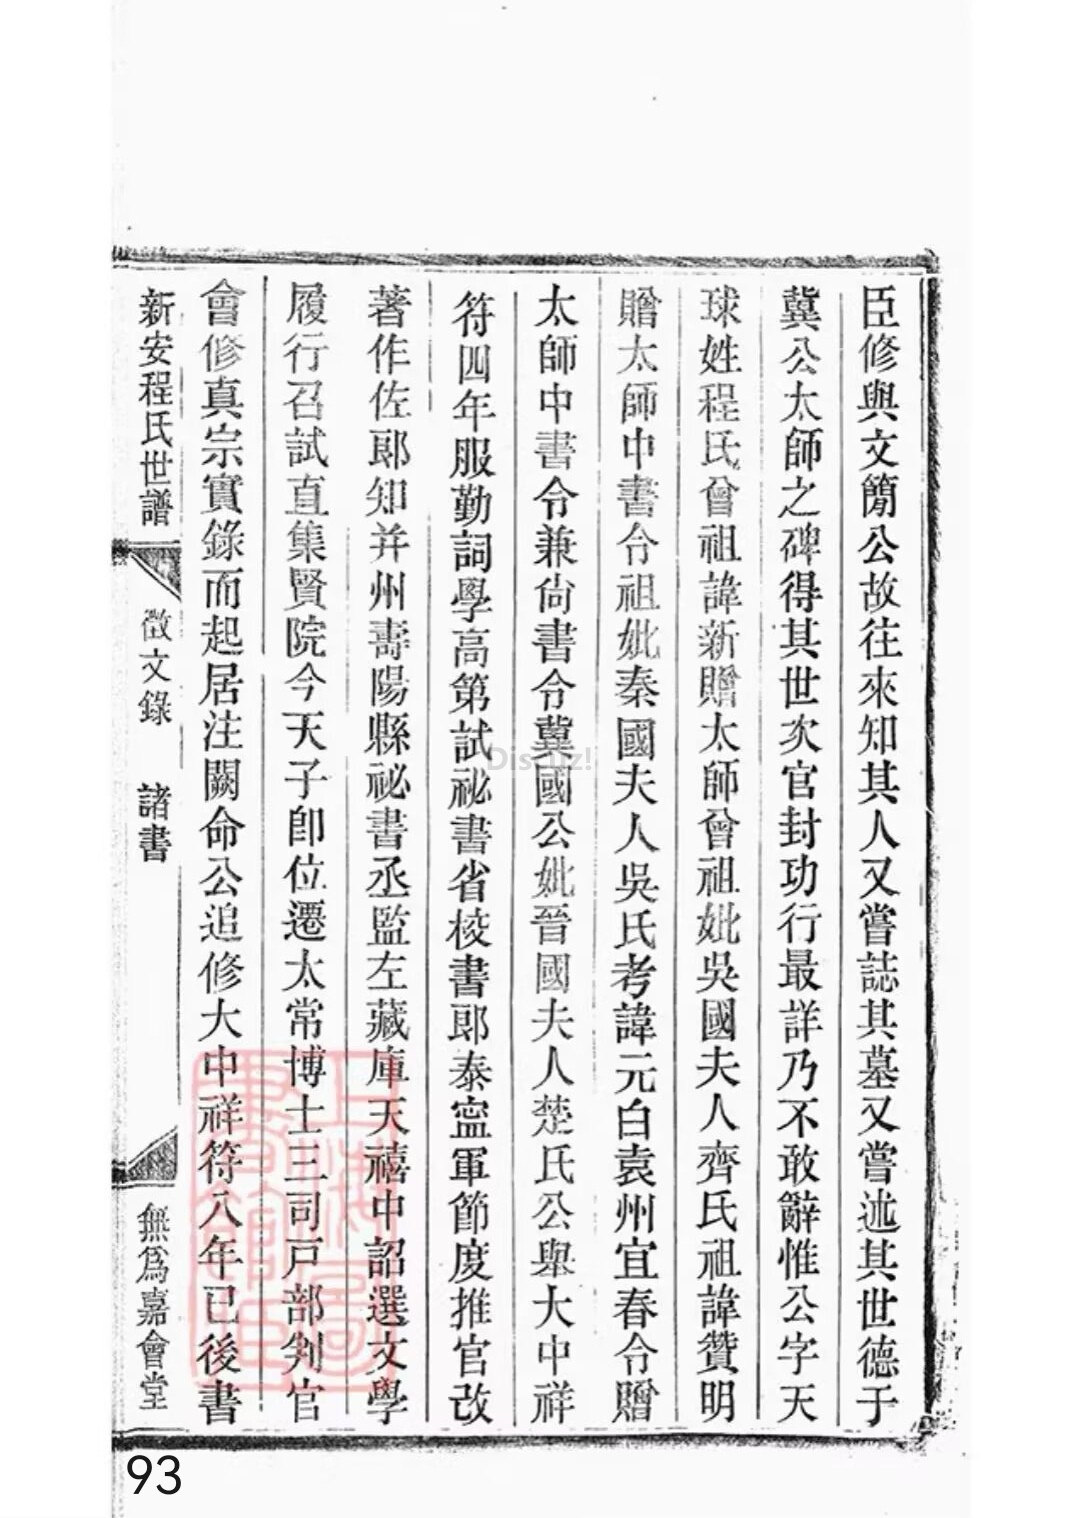 臣修與文簡公故往來知其人又嘗誌其墓又嘗述其世德于
冀公太師之碑得其世次官封功行最詳乃不敢辭惟公字天
球姓程氏曾祖諱新贈太師曾祖妣吳國夫人齊氏祖諱贊明
贈太師中書令祖妣秦國夫人吳氏考諱元白袁州宜春令贈
太師中書令兼尙書令冀國公妣晉國夫人楚氏公舉大中祥
符四年服勤詞學高第試祕書省校書郎泰寧軍節度推官改
著作佐郎知并州壽陽縣祕書丞監左藏庫天禧中詔選文學
履行召試直集賢院今天子卽位遷太常博士三司戸部判官
會修真宗實錄而起居注闕命公追修大中祥符八年已後書
新安程氏世譜
徵文錄 諸書
無爲嘉會堂
上海圖書館藏
Discuz!
93